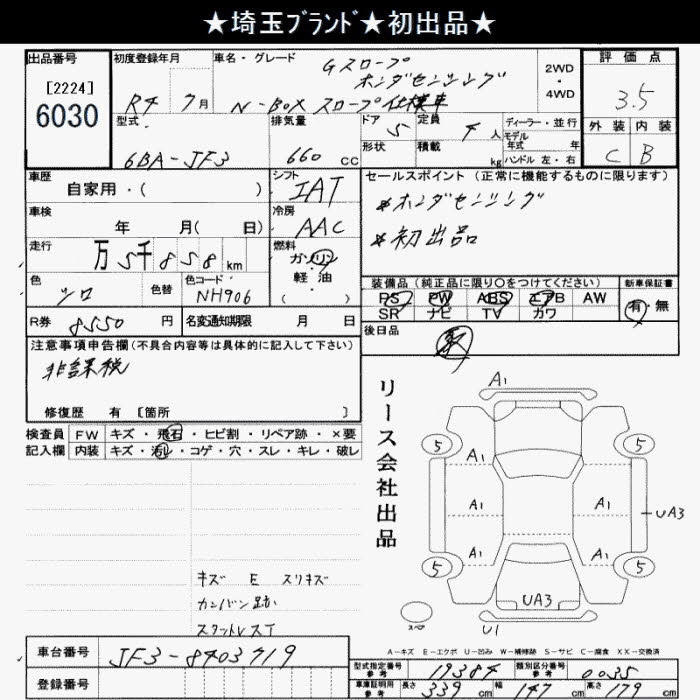 ★埼玉ﾌﾞﾗﾝﾄﾞ★初出品★
出品番号 初度登録年月 車名・グレード Gスロープ ホンダセンシング 2WD・4WD 評価点
[2224] 6030 R4 7月 N-BOX スロープ仕様車 3.5
型式 排気量 ドア 定員 ディーラー・並行 外装 内装
6BA-JF3 660 CC 5 4人 モデル年式 年 C B
形状 積載 kg ハンドル 左・右
車歴 自家用・( ) シフト IAT セールスポイント(正常に機能するものに限ります)
車検 年 月( 日) 冷房 AAC *ホンダセンシング
走行 万5千858km 燃料 ガソリン・軽油 ( ) *初出品
色 シロ 色替 色コード NH906 装備品(純正品に限り○をつけてください) 新車保証書
PS PW ABS エアB AW 有・無
SR ナビ TV カワ
R券 8550円 名変通知期限 月 日 後日品
注意事項申告欄(不具合内容等は具体的に記入して下さい)
非課税
修復歴 有 [箇所 ]
検査員記入欄 FW キズ・飛石・ヒビ割・リペア跡・×要
内装 キズ・汚レ・コゲ・穴・スレ・キレ・破レ
リース会社出品
A1
5 5
A1
A1 A1 UA3
A1 A1
5 5
UA3
スペア U1
キズ E スリキズ
カンバン跡
A-キズ E-エクボ U-凹み W-補修跡 S-サビ C-腐食 XX-交換済
車台番号 JF3-8403719
登録番号
型式指定番号 参考 19384 類別区分番号 参考 0035
車庫証明用 参考 長さ 339cm 幅 147cm 高さ 179cm